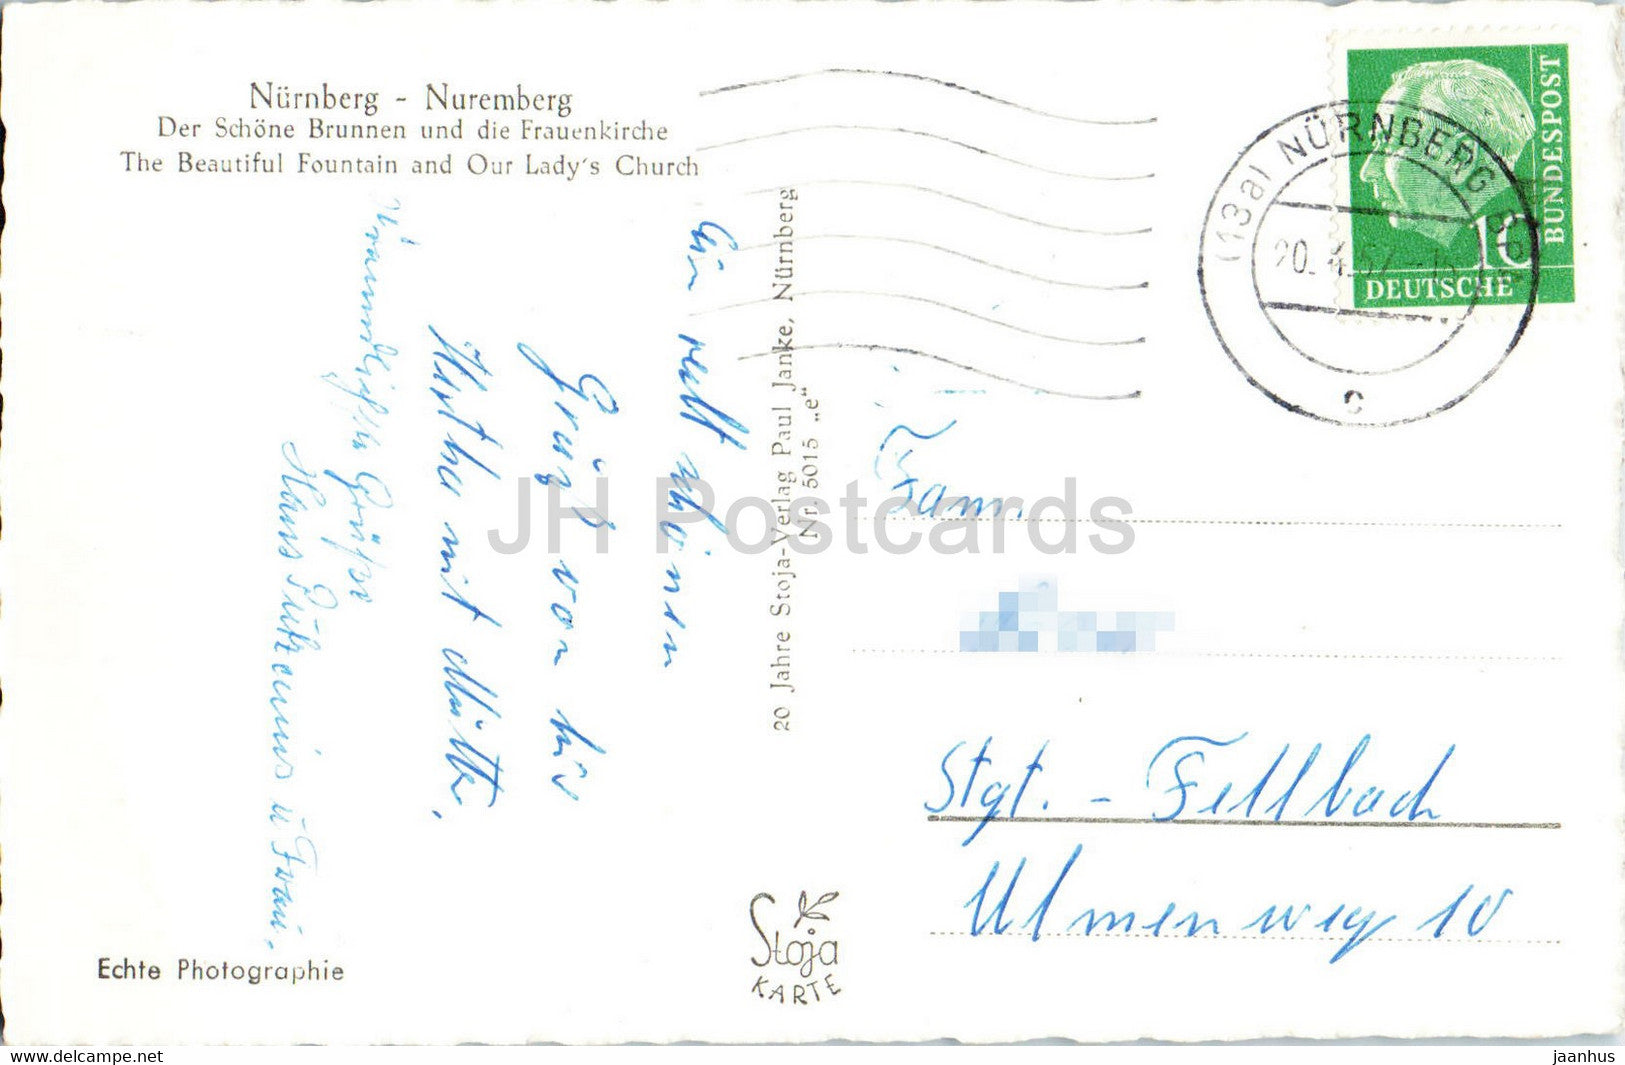 Nürnberg - Nuremberg
Der Schöne Brunnen und die Frauenkirche
The Beautiful Fountain and Our Lady's Church
Ein recht schönen
Gruß von
mit Mutter.
Freundliche Grüße
Hans u. Frau.
20 Jahre Stoja-Verlag Paul Janke, Nürnberg
Nr. 5015 „e“
Echte Photographie
Stoja
KARTE
(13a) NÜRNBERG
20. 4. 57
c
10
BUNDESPOST
DEUTSCHE
Fam.
Stgt. - Fellbach
Ulmenweg 10
JH Postcards
www.hippostcard.com
jaanhus